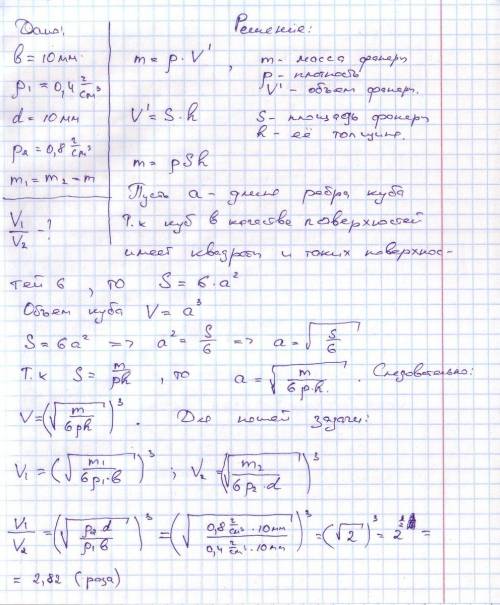 Дано: Решение:
b = 10 мм
ρ₁ = 0,4 г/см³
d = 10 мм
ρ₂ = 0,8 г/см³
m₁ = m₂ = m
V₁/V₂ - ?
m = ρ · V' , m - масса фанеры
ρ - плотность
V' - объем фанеры.
V' = S · h S - площадь фанеры
h - её толщина.
m = ρSh
Пусть a - длина ребра куба
Т.к куб в качестве поверхностей
имеет квадраты и таких поверхнос-
тей 6 , то S = 6 · a²
Объем куба V = a³
S = 6a² => a² = S/6 => a = √(S/6)
Т.к S = m/ρh , то a = √(m/6ρ·h) . Следовательно:
V = (√(m/6ρh))³ . Для нашей задачи:
V₁ = (√(m₁/6ρ₁·b))³ ; V₂ = (√(m₂/6ρ₂·d))³
V₁/V₂ = (√(ρ₂d/ρ₁b))³ = (√(0,8 г/см³ · 10мм / 0,4 г/см³ · 10мм))³ = (√2)³ = 2^(3/2) =
= 2,82 (раза)